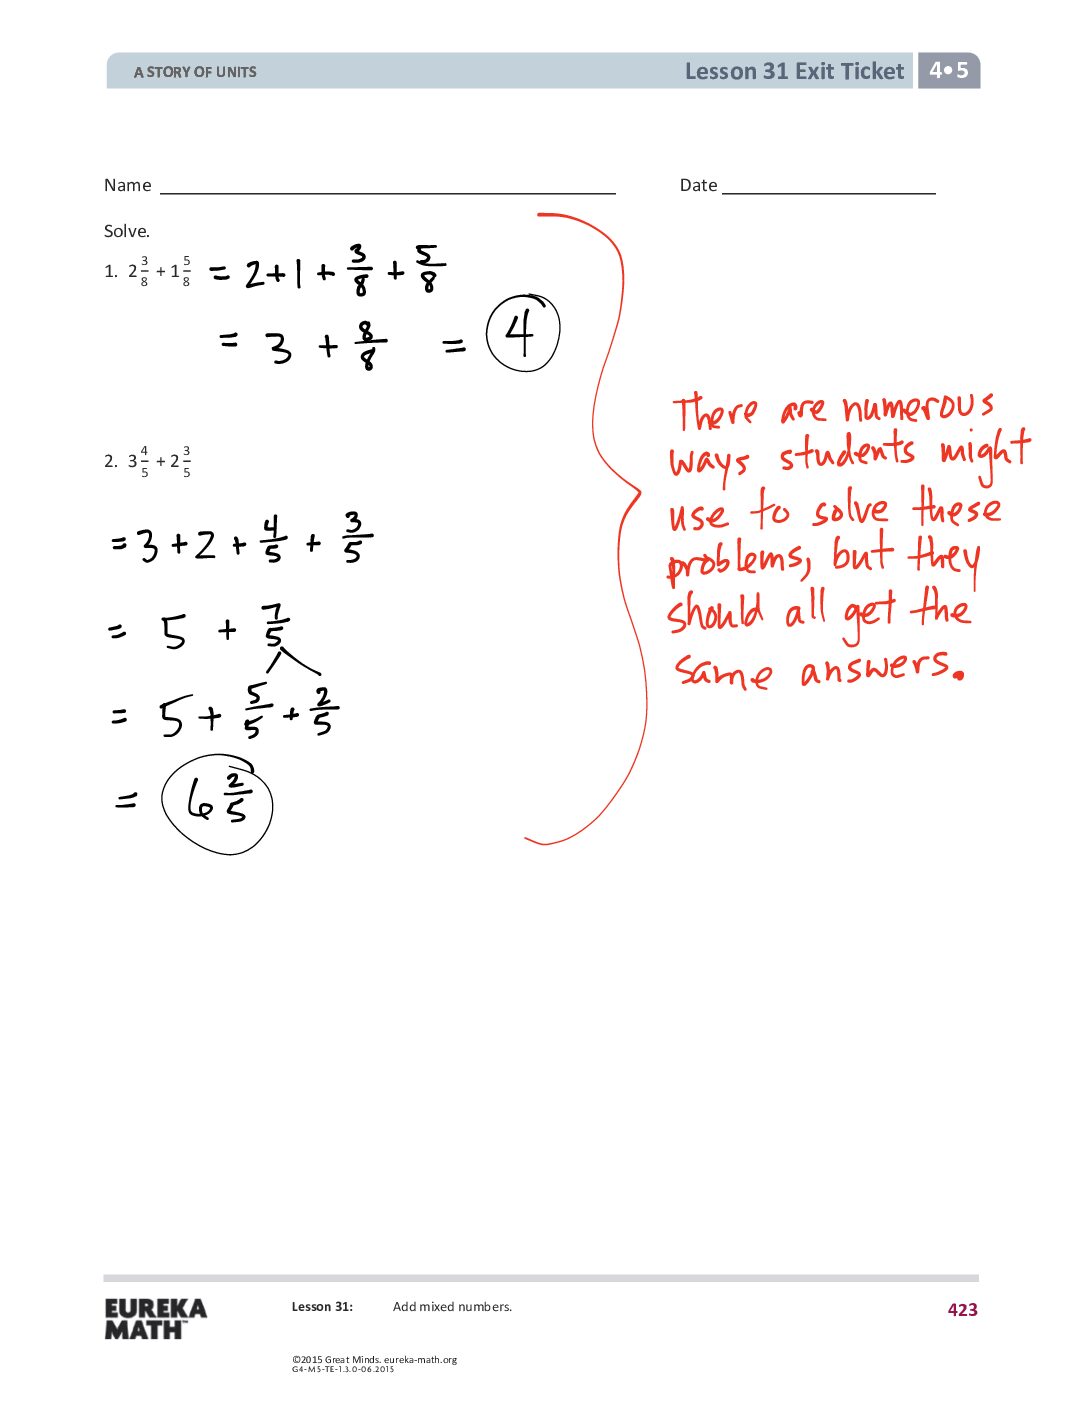 A STORY OF UNITS
Lesson 31 Exit Ticket 4•5
Name
Date
Solve.
1. 2 3/8 + 1 5/8 = 2 + 1 + 3/8 + 5/8
= 3 + 8/8 = 4
There are numerous
ways students might
use to solve these
problems, but they
should all get the
same answers.
2. 3 4/5 + 2 3/5
= 3 + 2 + 4/5 + 3/5
= 5 + 7/5
= 5 + 5/5 + 2/5
= 6 2/5
EUREKA
MATH™
Lesson 31: Add mixed numbers.
423
©2015 Great Minds. eureka-math.org
G4-M5-TE-1.3.0-06.2015